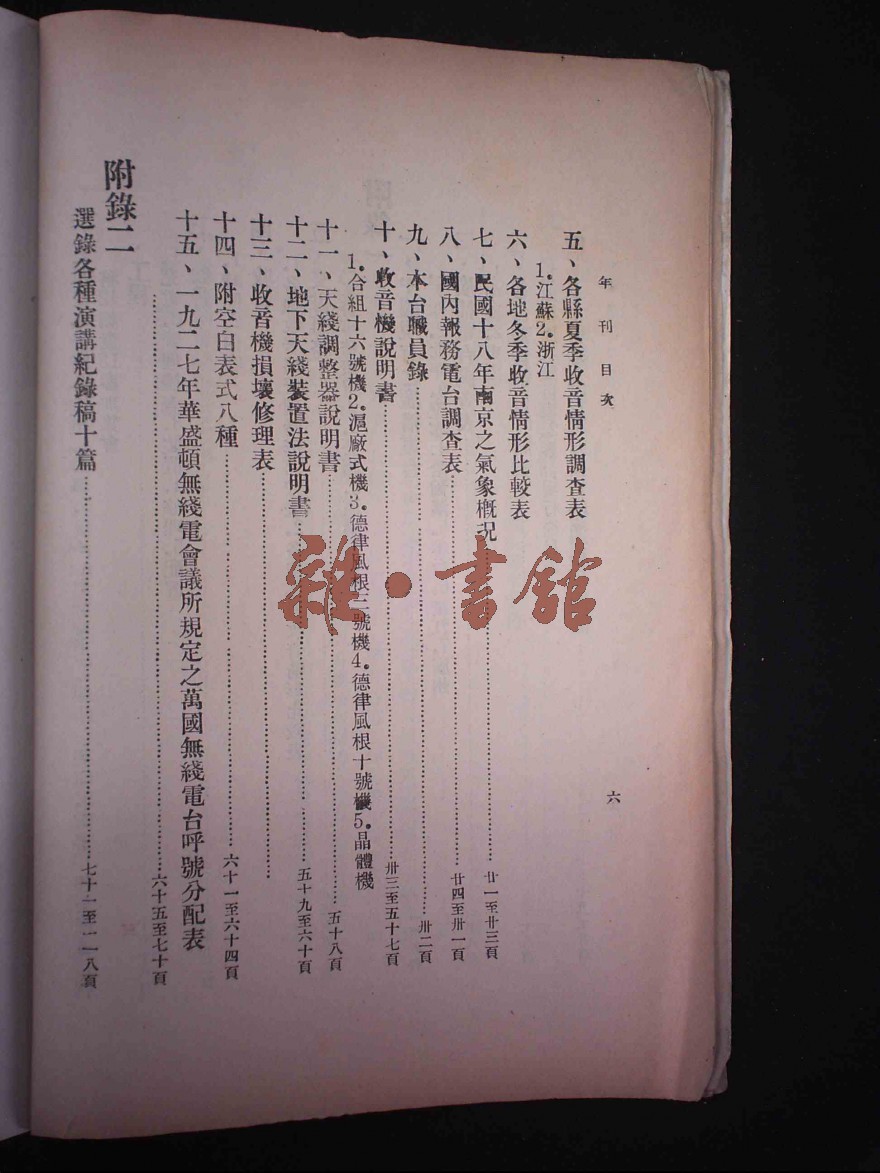 年刊目次
六
五、各縣夏季收音情形調查表
1.江蘇2.浙江
六、各地冬季收音情形比較表
七、民國十八年南京之氣象概況……廿一至廿三頁
八、國內報務電台調查表……廿四至卅一頁
九、本台職員錄……卅二頁
十、收音機說明書……卅三至五十七頁
1.合組十六號機2.滬廠式機3.德律風根三號機4.德律風根十號機5.晶體機
十一、天綫調整器說明書……五十八頁
十二、地下天綫裝置法說明書……五十九至六十頁
十三、收音機損壞修理表……
十四、附空白表式八種……六十一至六十四頁
十五、一九二七年華盛頓無綫電會議所規定之萬國無綫電台呼號分配表
……六十五至七十頁
附錄二
選錄各種演講紀錄稿十篇……七十一至一一八頁
雜·書館